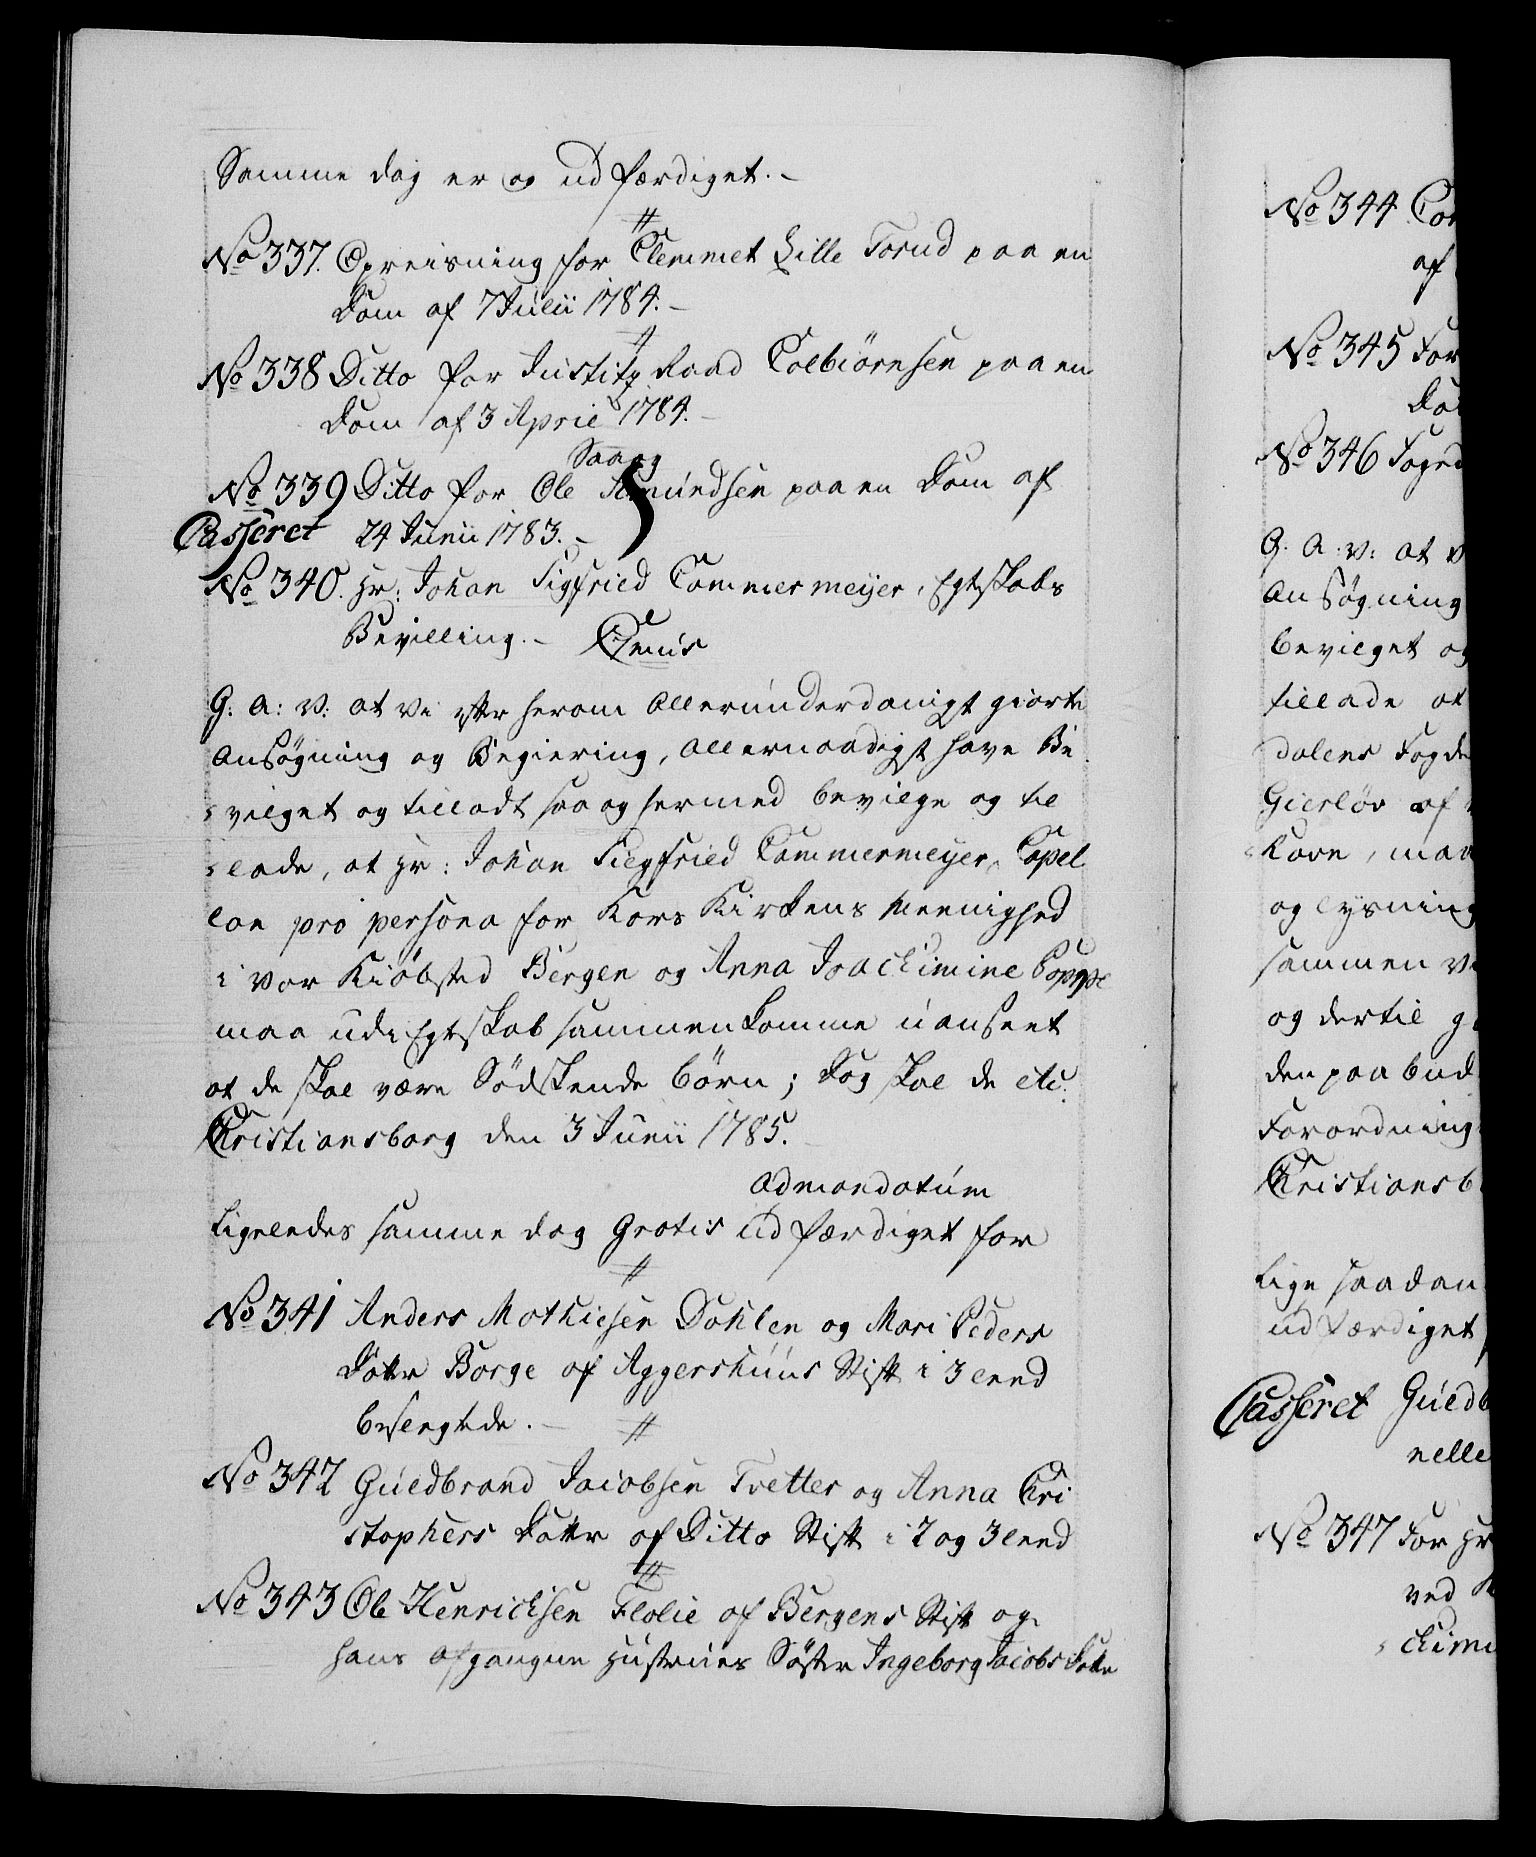 Samme dag er og udfærdiget.-
No 337. Opreisning for Clemmet Lille Torud paa en
Dom af 7 Julii 1784.-
No 338 Ditto for Justitz Raad Colbiørnsen paa en
Dom af 3 April 1784.-
Saaog
No 339 Ditto for Ole Amundsen paa en Dom af
Casseret 24 Junii 1783.-
No 340. Hr: Johan Sigfried Cammermeyer, Egteskabs
Bevilling.-
G: A: V: at vi efter herom allerunderdanigst giorte
Ansøgning og Begiering, allernaadigst have Be
vilget og tilladt saa og hermed bevilge og til
lade, at Hr: Johan Siegfried Cammermeyer, Capel
lan pro persona for Kors Kirkens Meenighed
i vor Kiøbsted Bergen og Anna Joachimine Poppe
maa udi Egteskab sammenkomme uanseet
at de skal være Sødskende børn; dog skal de etc.
Christiansborg den 3 Junii 1785.
admandatum
Ligeledes samme dag Gratis udfærdiget for
No 341 Anders Mathiesen Dahlen og Mari Peders
Datter Borge af Aggershuus Stift i 3 leed
beslegtede.-
No 342 Guldbrand Jacobsen Tretter og Anna Chri
stophers Datter af Ditto Stift i 2 og 3 leed
No 343 Ole Henrichsen Flolie af Bergens Stift og
hans afgangne Hustrues Søster Ingeborg Jacobs Datter
No 344
af
No 345 For
No 346 Foged
G: A: V: at
Ansøgning
bevilget og
tillade at
dalens Fogde
Gierløv af
Korn,
og lysning
sammen
og dertil
den paabud
Forordning
Christiansb
Lige saadan
udfærdiget
Casseret Guldb
nelle
No 347 For Hr
ved